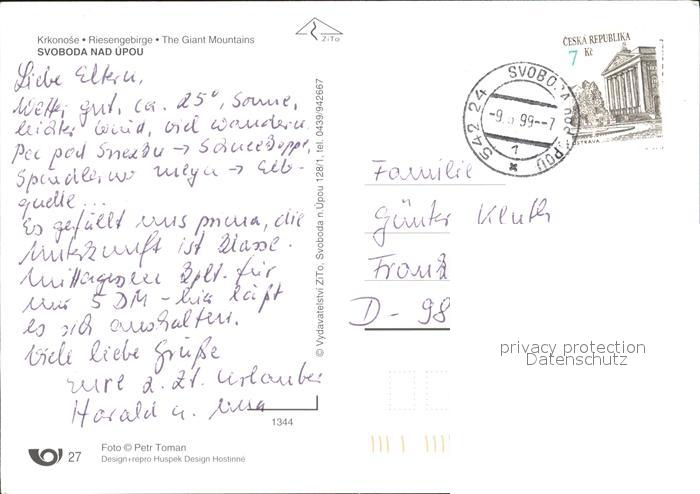 Krkonoše • Riesengebirge • The Giant Mountains
SVOBODA NAD ÚPOU
ZiTo
Liebe Eltern,
Wetter gut, ca. 25°, Sonne,
leichter Wind, viel wandern.
Pec pod Sněžkou → Schneekoppe,
Spindlerův mlýn → Elb-
quelle ...
Es gefällt uns prima, die
Unterkunft ist Klasse.
Mittagessen kplt. für
nur 5 DM – hier läßt
es sich aushalten.
Viele liebe Grüße
Eure z. Zt. Urlauber
Harald u.
1344
27
Foto © Petr Toman
Design+repro Huspek Design Hostinné
© Vydavatelství ZiTo, Svoboda n.Úpou 128/1, tel. 0439/942667
ČESKÁ REPUBLIKA
7 Kč
OSTRAVA
542 24 SVOBODA POD ÚPOU
-9. 99--7
1
Familie
Günter Kluth
Franz
D - 98
privacy protection
Datenschutz